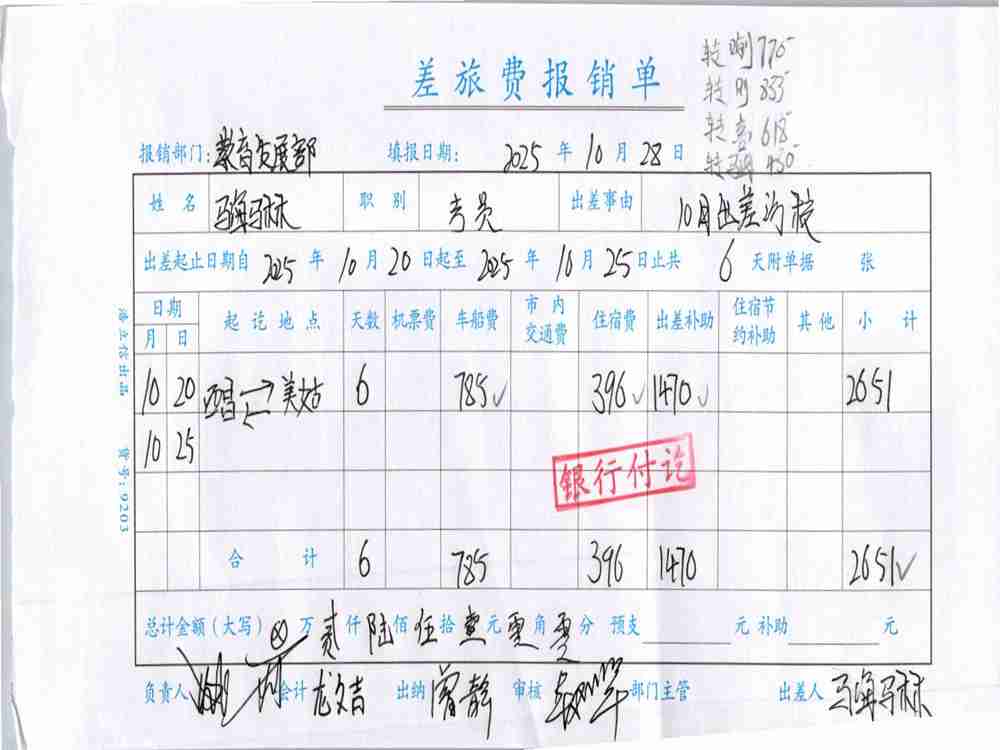 差旅费报销单
转 770
转 833
转 618
转 450
报销部门: 教育发展部 填报日期: 2025 年 10 月 28 日
姓名 马海马林 职别 专员 出差事由 10月出差沟校
出差起止日期自 2025 年 10 月 20 日起至 2025 年 10 月 25 日止共 6 天附单据 张
日期 起讫地点 天数 机票费 车船费 市内交通费 住宿费 出差补助 住宿节约补助 其他 小计
月 日
10 20 西昌 美姑 6 785 396 1470 2651
10 25
银行付讫
合计 6 785 396 1470 2651
总计金额(大写) ⊗ 万 贰 仟 陆 佰 伍 拾 壹 元 零 角 零 分 预支 元 补助 元
负责人 会计 龙文吉 出纳 曾静 审核 部门主管 出差人 马海马林
立信出品 货号:9203